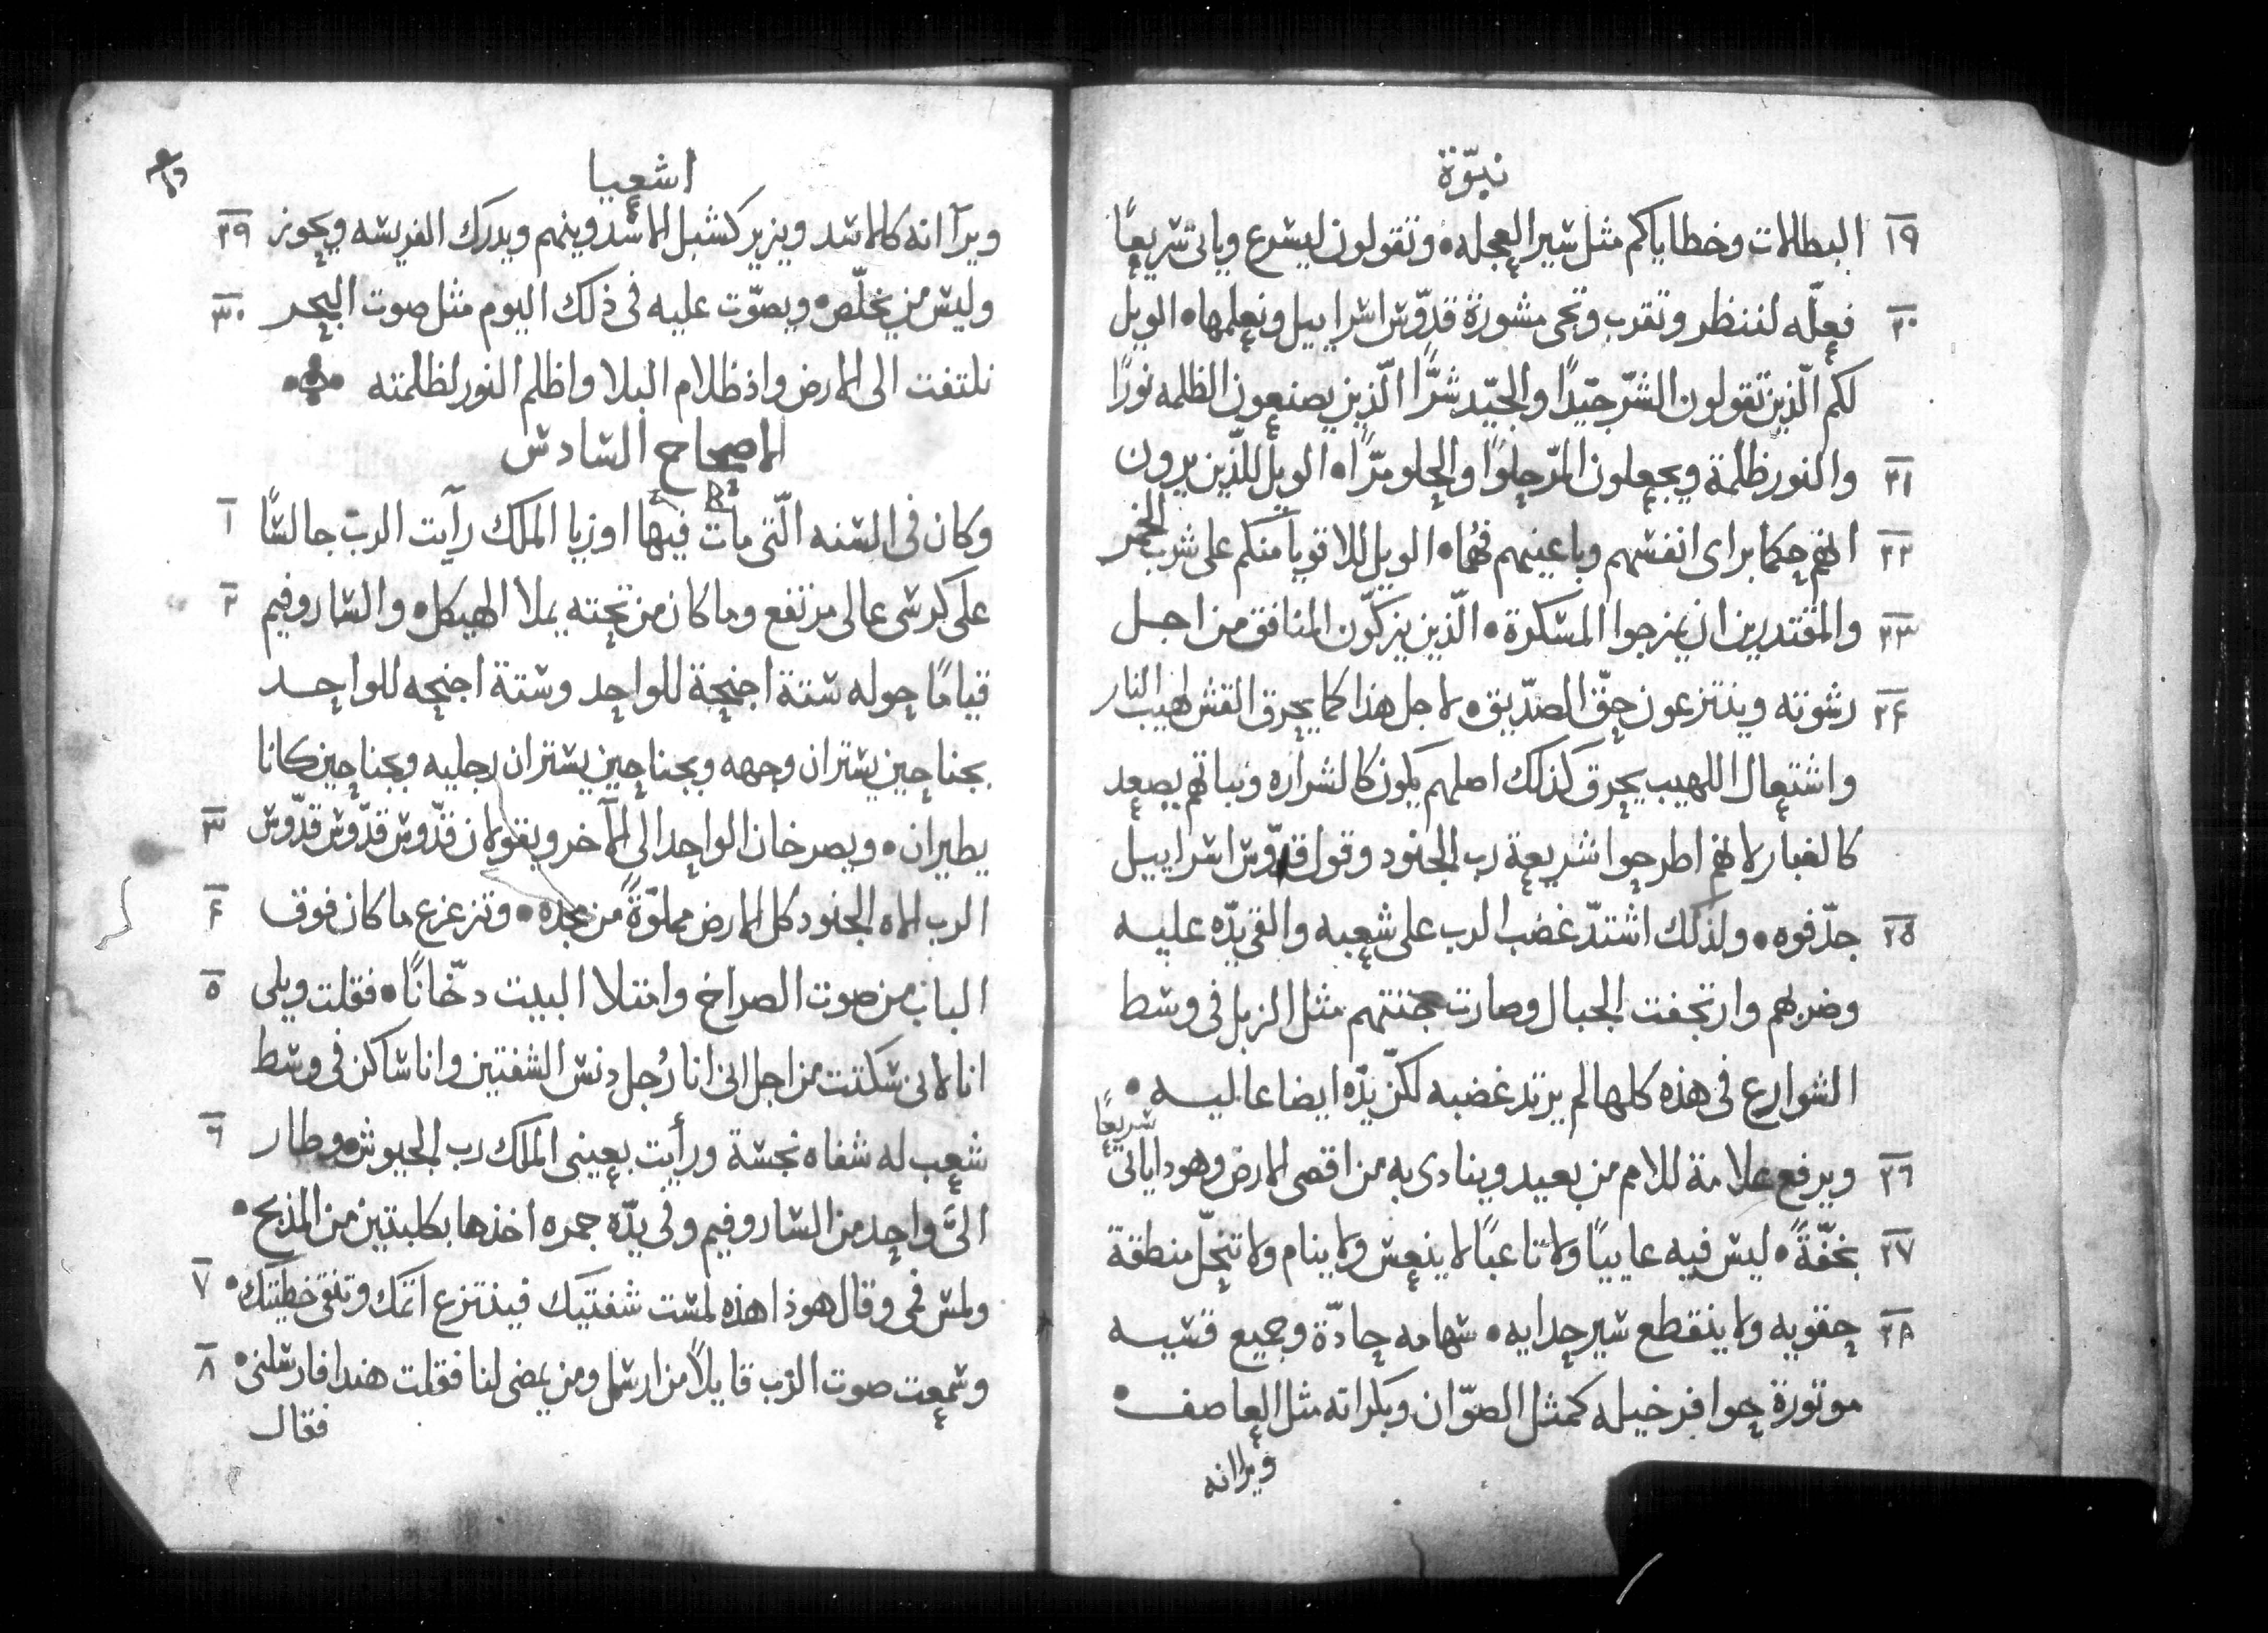 نبوّة
١٩ البطالات وخطاياكم مثل سير العجله • وتقولون ليسرع وياتي سريعًا
٢٠ فعله لننظر وتقرب وتجي مشورة قدّوس اسراييل ونعلمها • الويل
لكم الّذين تقولون الشرّ جيّدًا والجيّد شرًّا الّذين يصنعون الظلمه نورًا
٢١ والنور ظلمة ويجعلون المرّ حلوًا والحلو مرًّا • الويل للّذين يرون
٢٢ انهم حكما براى انفسهم وباعينهم فهُما • الويل للاقويا منكم على شرب الخمر
٢٣ والمقتدرين ان يمزجوا المسكرة • الّذين يزكّون المنافق من اجل
٢٤ رشوته وينتزعون حقّ الصدّيق • لاجل هذا كما يحرق القش لهيب النار
واشتعال اللهيب يحرق كذلك اصلهم يكون كالشراره ونباتهم يصعد
كالغبار لانهم اطرحوا شريعة رب الجنود وقول قدّوس اسراييل
٢٥ جدّفوه • ولذلك اشتدّ غضب الرب على شعبه والقى يدّه عليه
وضربهم وارتجفت الجبال وصارت جثتهم مثل الزبل في وسط
الشوارع في هذه كلها لم يرتد غضبه لكنّ يدّه ايضا عاليه •
٢٦ ويرفع علامة للامم من بعيد وينادى به من اقصى الارض وهودا ياتي سريعًا
٢٧ بخفّةً • ليس فيه عاييًا ولا تاعبًا لا ينعس ولا ينام ولا تنحلّ منطقة
٢٨ حقويه ولا ينقطع سير حدايه • سهامه حادّة وجميع قسيه
موتورة حوافر خيله كمثل الصوّان وبكراته مثل العاصف •
ويرا انه
اشعيا
٢٩ ويرآ انه كالاسد ويزير كشبل الاسد وينهم ويدرك الفريسه ويحوز
٣٠ وليس من يخلّص • ويصوّت عليه في ذلك اليوم مثل صوت البحر
نلتفت الى الارض واذ ظلام البلا واظلم النور لظلمته
الاصحاح السادس
١ وكان في السنه الّتي مات فيها اوزيا الملك رآيت الرب جالسًا
٢ على كرسي عالى مرتفع وما كان من تحته يملا الهيكل • والساروفيم
قيامًا حوله ستة اجنحة للواحد وستة اجنحه للواحد
بجناحين يستران وجهه وبجناحين يستران رجليه وبجناحين كانا
٣ يطيران • ويصرخان الواحد الى الآخر ويقولان قدّوس قدّوس قدّوس
٤ الرب الاه الجنود كل الارض مملوّةً من مجده • وتزعزع ما كان فوق
٥ الباب من صوت الصراخ وامتلا البيت دخّانًا • فقلت ويلي
انا لانى سكتت من اجل انى انا رُجل دنس الشفتين وانا ساكن في وسط
٦ شعب له شفاه نجسة ورأيت بعيني الملك رب الجيوش • وطار
الىّ واحد من الساروفيم وفي يدّه جمره اخذها بكلبتين من المذبح •
٧ ولمس فمي وقال هوذا هذه لمست شفتيك فينتزع اثمك وتنقى خطيتك •
٨ وسمعت صوت الرّب قايلاً من ارسل ومن يمضى لنا فقلت هندا فارسلنى •
فقال